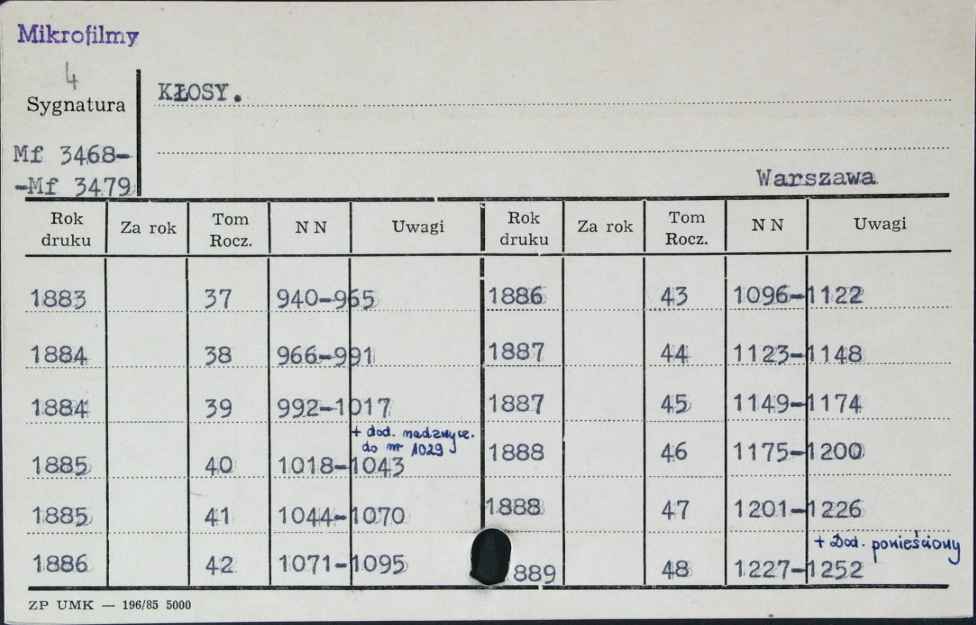 Mikrofilmy
4
Sygnatura
KŁOSY.
Mf 3468-
-Mf 3479
Warszawa
Rok druku Za rok Tom Rocz. N N Uwagi Rok druku Za rok Tom Rocz. N N Uwagi
1883 37 940-965 1886 43 1096-1122
1884 38 966-991 1887 44 1123-1148
1884 39 992-1017 1887 45 1149-1174
+ dod. nadzwycz.
do nr 1029
1885 40 1018-1043 1888 46 1175-1200
1885 41 1044-1070 1888 47 1201-1226
+ Dod. powieściowy
1886 42 1071-1095 889 48 1227-1252
ZP UMK — 196/85 5000